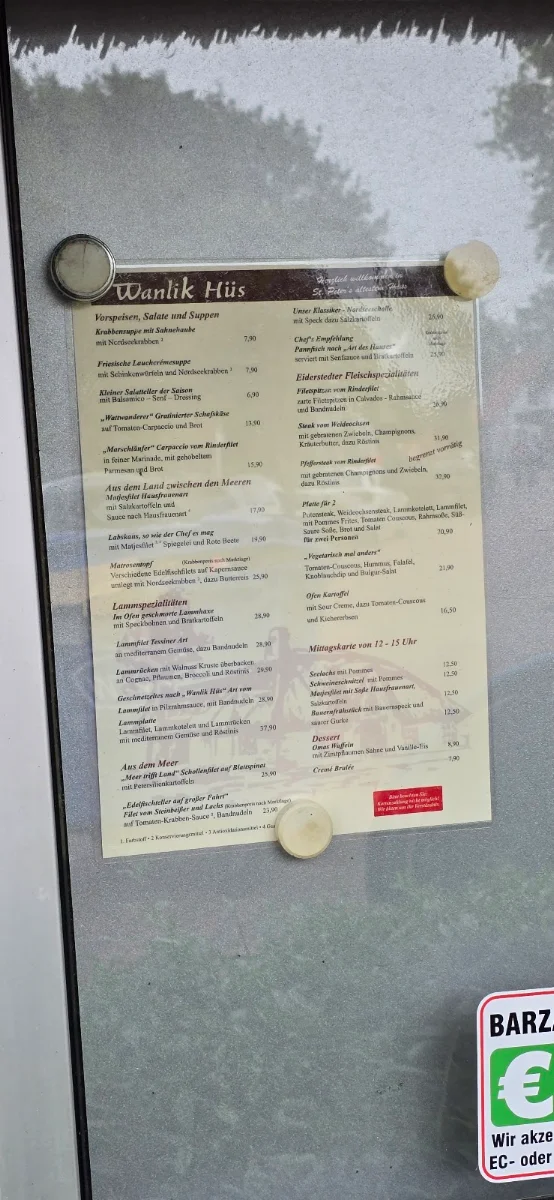 Wanlik Hüs
Herzlich willkommen in
St. Peter's ältestem Haus
Vorspeisen, Salate und Suppen
Krabbensuppe mit Sahnehaube
mit Nordseekrabben 7,90
Friesische Lauchcrémesuppe
mit Schinkenwürfeln und Nordseekrabben 7,90
Kleiner Salatteller der Saison
mit Balsamico - Senf - Dressing 6,90
„Wattwanderer" Gratinierter Schafskäse
auf Tomaten-Carpaccio und Brot 13,90
„Marschläufer" Carpaccio vom Rinderfilet
in feiner Marinade, mit gehobeltem
Parmesan und Brot 15,90
Aus dem Land zwischen den Meeren
Matjesfilet Hausfrauenart
mit Salzkartoffeln und
Sauce nach Hausfrauenart 17,90
Labskaus, so wie der Chef es mag
mit Matjesfilet Spiegelei und Rote Beete 19,90
Matrosentopf (Krabbenpreis nach Marktlage)
Verschiedene Edelfischfilets auf Kapernsauce
umlegt mit Nordseekrabben, dazu Butterreis 25,90
Lammspezialitäten
Im Ofen geschmorte Lammhaxe
mit Speckbohnen und Bratkartoffeln 28,90
Lammfilet Tessiner Art
an mediterranem Gemüse, dazu Bandnudeln 28,90
Lammrücken mit Walnuss Kruste überbacken
an Cognac, Pflaumen, Broccoli und Röstinis 29,90
Geschnetzeltes nach „Wanlik Hüs" Art vom
Lammfilet in Pilzrahmsauce, mit Bandnudeln 28,90
Lammplatte
Lammfilet, Lammkotelett und Lammrücken
mit mediterranem Gemüse und Röstinis 37,90
Aus dem Meer
„Meer trifft Land" Schollenfilet auf Blauspinat
mit Petersilienkartoffeln 25,90
„Edelfischteller auf großer Fahrt"
Filet vom Steinbeißer und Lachs (Krabbenpreis nach Marktlage)
auf Tomaten-Krabben-Sauce, Bandnudeln
1. Farbstoff • 2 Konservierungsmittel • 3 Antioxidationsmittel • 4
Unser Klassiker - Nordseescholle
mit Speck dazu Salzkartoffeln
Chef's Empfehlung
Pannfisch nach „Art des Hauses"
serviert mit Senfsauce und Bratkartoffeln
Eiderstedter Fleischspezialitäten
Filetspitzen vom Rinderfilet
zarte Filetspitzen in Calvados - Rahmsauce
und Bandnudeln 28,90
Steak vom Weideochsen
mit gebratenen Zwiebeln, Champignons,
Kräuterbutter, dazu Röstinis 31,90
begrenzt vorrätig
Pfeffersteak vom Rinderfilet
mit gebratenen Champignons und Zwiebeln,
dazu Röstinis 32,90
Platte für 2
Putensteak, Weideochsensteak, Lammkotelett, Lammfilet,
mit Pommes Frites, Tomaten Couscous, Rahmsoße, Süß-
Saure Soße, Brot und Salat
für zwei Personen 70,90
„Vegetarisch mal anders"
Tomaten-Couscous, Hummus, Falafel,
Knoblauchdip und Bulgur-Salat 21,90
Ofen Kartoffel
mit Sour Creme, dazu Tomaten-Couscous
und Kichererbsen 16,50
Mittagskarte von 12 - 15 Uhr
Seelachs mit Pommes 12,50
Schweineschnitzel mit Pommes 12,50
Matjesfilet mit Soße Hausfrauenart,
Salzkartoffeln 12,50
Bauernfrühstück mit Bauernspeck und
saurer Gurke 12,50
Dessert
Omas Waffeln
mit Zimtpflaumen Sahne und Vanille-Eis 8,90
Cremé Brulée 7,90
BARZA
€
Wir akze
EC- oder